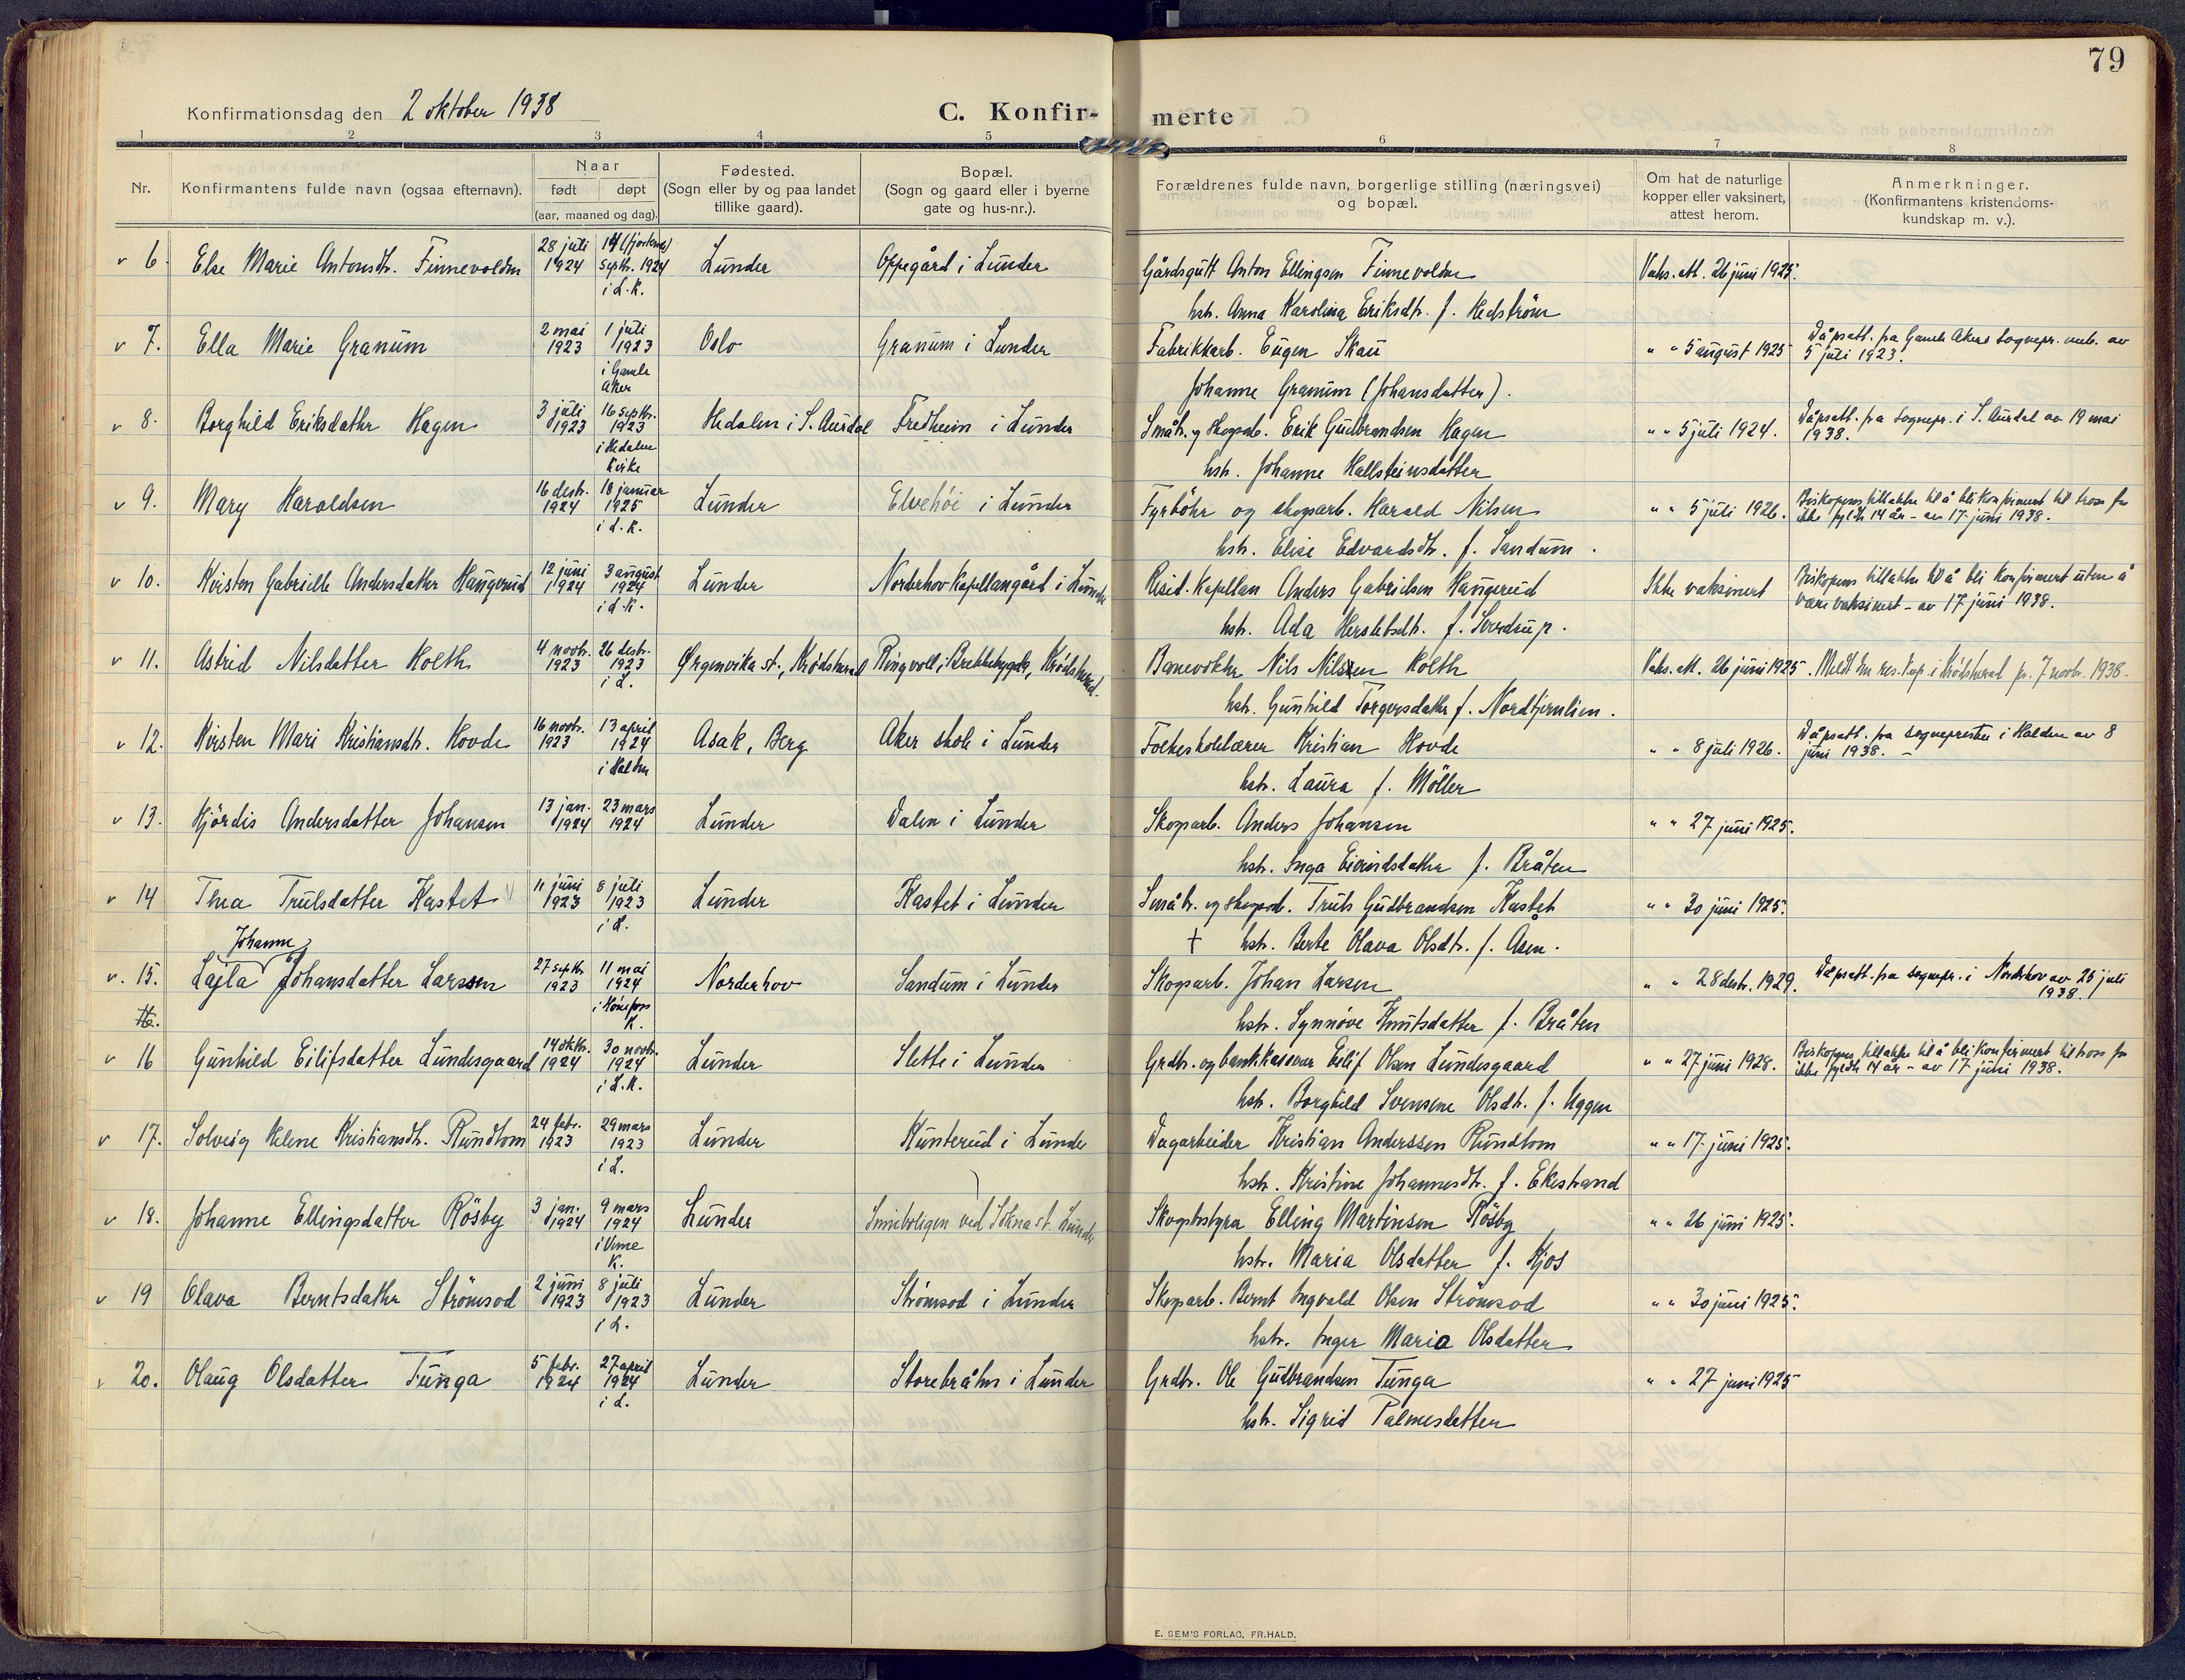 79
Konfirmationsdag den 2 oktober 1938
C. Konfir-
merte
1 2 3 4 5 6 7 8
Nr. Konfirmantens fulde navn (ogsaa efternavn). Naar født døpt (aar, maaned og dag). Fødested. (Sogn eller by og paa landet tillike gaard). Bopæl. (Sogn og gaard eller i byerne gate og hus-nr.). Forældrenes fulde navn, borgerlige stilling (næringsvei) og bopæl. Om hat de naturlige kopper eller vaksinert, attest herom. Anmerkninger. (Konfirmantens kristendoms-kundskap m. v.).
v 6. Else Marie Antonsdtr. Finnevolden 28 juli 1924 14 (fjortende) septbr. 1924 i L.K. Lunder Oppegård i Lunder Gårdsgutt Anton Ellingsen Finnevolden Vaks. att. 26 juni 1925.
hstr. Anna Karolina Eriksdtr. f. Hedström
v 7. Ella Marie Granum 2 mai 1923 1 juli 1923 i Gamle Aker Oslo Granum i Lunder Fabrikkarb. Eugen Skau " " 5 august 1925 Dåpsatt. fra Gamle Akers sognepr. emb. av 5 juli 1923.
Johanne Granum (Johansdatter).
v 8. Borghild Eriksdatter Hagen 3 juli 1923 16 septbr. 1923 i Hedalen kirke Hedalen i S. Aurdal Fredheim i Lunder Småbr. og skogsarb. Erik Gudbrandsen Hagen " " 5 juli 1924. Dåpsatt. fra sognepr. i S. Aurdal av 19 mai 1938.
hstr. Johanne Hallsteinsdatter
v 9. Mary Haraldsen 16 desbr. 1924 18 januar 1925 i L.K. Lunder Elvehöi i Lunder Fyrböter og skogsarb. Harald Nilsen " " 5 juli 1926. Biskopens tillatelse til å bli konfirmert til tross for ikke fyldte 14 år - av 17 juni 1938.
hstr. Elise Edvardsdtr. f. Sandum.
v 10. Kirsten Gabrielle Andersdatter Haugerud 12 juni 1924 3 august 1924 i L.K. Lunder Norderhov Kapellangård i Lunder Resid. Kapellan Anders Gabrielsen Haugerud Ikke vaksinert Biskopens tillatelse til å bli konfirmert uten å være vaksinert - av 17 juni 1938.
hstr. Ada Herslebsdtr. f. Sverdrup.
v 11. Astrid Nilsdatter Holth 4 novbr. 1923 26 desbr. 1923 i L. Ørgenvika st., Krödsherad Ringvoll i Brekkebygda, Krödsherad. Banevokter Nils Nilsen Holth Vaks. att. 26 juni 1925. Meldt den res. kap. i Krödsherad pr. 7 novbr. 1938.
hstr. Gunhild Torgersdatter f. Nordtjernlien.
v 12. Kirsten Mari Kristiansdtr. Hovde 16 novbr. 1923 13 april 1924 i Halden Asak, Berg Aker skole i Lunder Folkeskolelærer Kristian Hovde " " 8 juli 1926. Dåpsatt. fra sognepresten i Halden av 8 juni 1938.
hstr. Laura f. Möller
v 13. Hjördis Andersdatter Johansen 13 jan. 1924 23 mars 1924 Lunder Dalen i Lunder Skogsarb. Anders Johansen " " 27 juni 1925.
hstr. Inga Eivindsdatter f. Bråten
v 14 Thea Trulsdatter Kastet 11 juni 1923 8 juli 1923 i L. Lunder Kastet i Lunder Småbr. og skogsarb. Truls Gudbrandsen Kastet " " 30 juni 1925.
† hstr. Berte Olava Olsdtr. f. Åsen.
Johanne
v. 15. Lajla Johansdatter Larssen 27 septbr. 1923 11 mai 1924 i Hönefoss K. Norderhov Sandum i Lunder Skogsarb. Johan Larsen " " 28 desbr. 1929. Dåpsatt. fra sognepr. i Norderhov av 25 juli 1938.
16. hstr. Synnöve Knutsdatter f. Bråten
v 16 Gunhild Eilifsdatter Lundesgaard 14 oktbr. 1924 30 novbr. 1924 i L.K. Lunder Slette i Lunder Grdbr. og bankkasserer Eilif Olsen Lundesgaard " " 27 juni 1928. Biskopens tillatelse til å bli konfirmert til tross for ikke fyldte 14 år - av 17 juni 1938.
hstr. Borghild Svensine Olsdtr. f. Uggen
v 17. Solveig Helene Kristiansdtr. Rundtom 24 febr. 1923 29 mars 1923 i L. Lunder Kunterud i Lunder Dagarbeider Kristian Anderssen Rundtom " " 17 juni 1925.
hstr. Kristine Johannesdtr. f. Ekestrand
v 18. Johanne Ellingsdatter Rösby 3 jan. 1924 9 mars 1924 i Veme K. Lunder Smieboligen ved Sokna st. Lunder Skogbestyrer Elling Martinsen Rösby " " 26 juni 1925.
hstr. Maria Olsdatter f. Kjos
v 19 Olava Berntsdatter Strömsod 2 juni 1923 8 juli 1923 i L. Lunder Strömsod i Lunder Skogsarb. Bernt Ingvald Olsen Strömsod " " 30 juni 1925.
hstr. Inger Maria Olsdatter
v 20. Olaug Olsdatter Tunga 5 febr. 1924 27 april 1924 i L. Lunder Storebråten i Lunder Grdbr. Ole Gudbrandsen Tunga " " 27 juni 1925
hstr. Sigrid Palmesdatter
E. SEM'S FORLAG, FR.HALD.